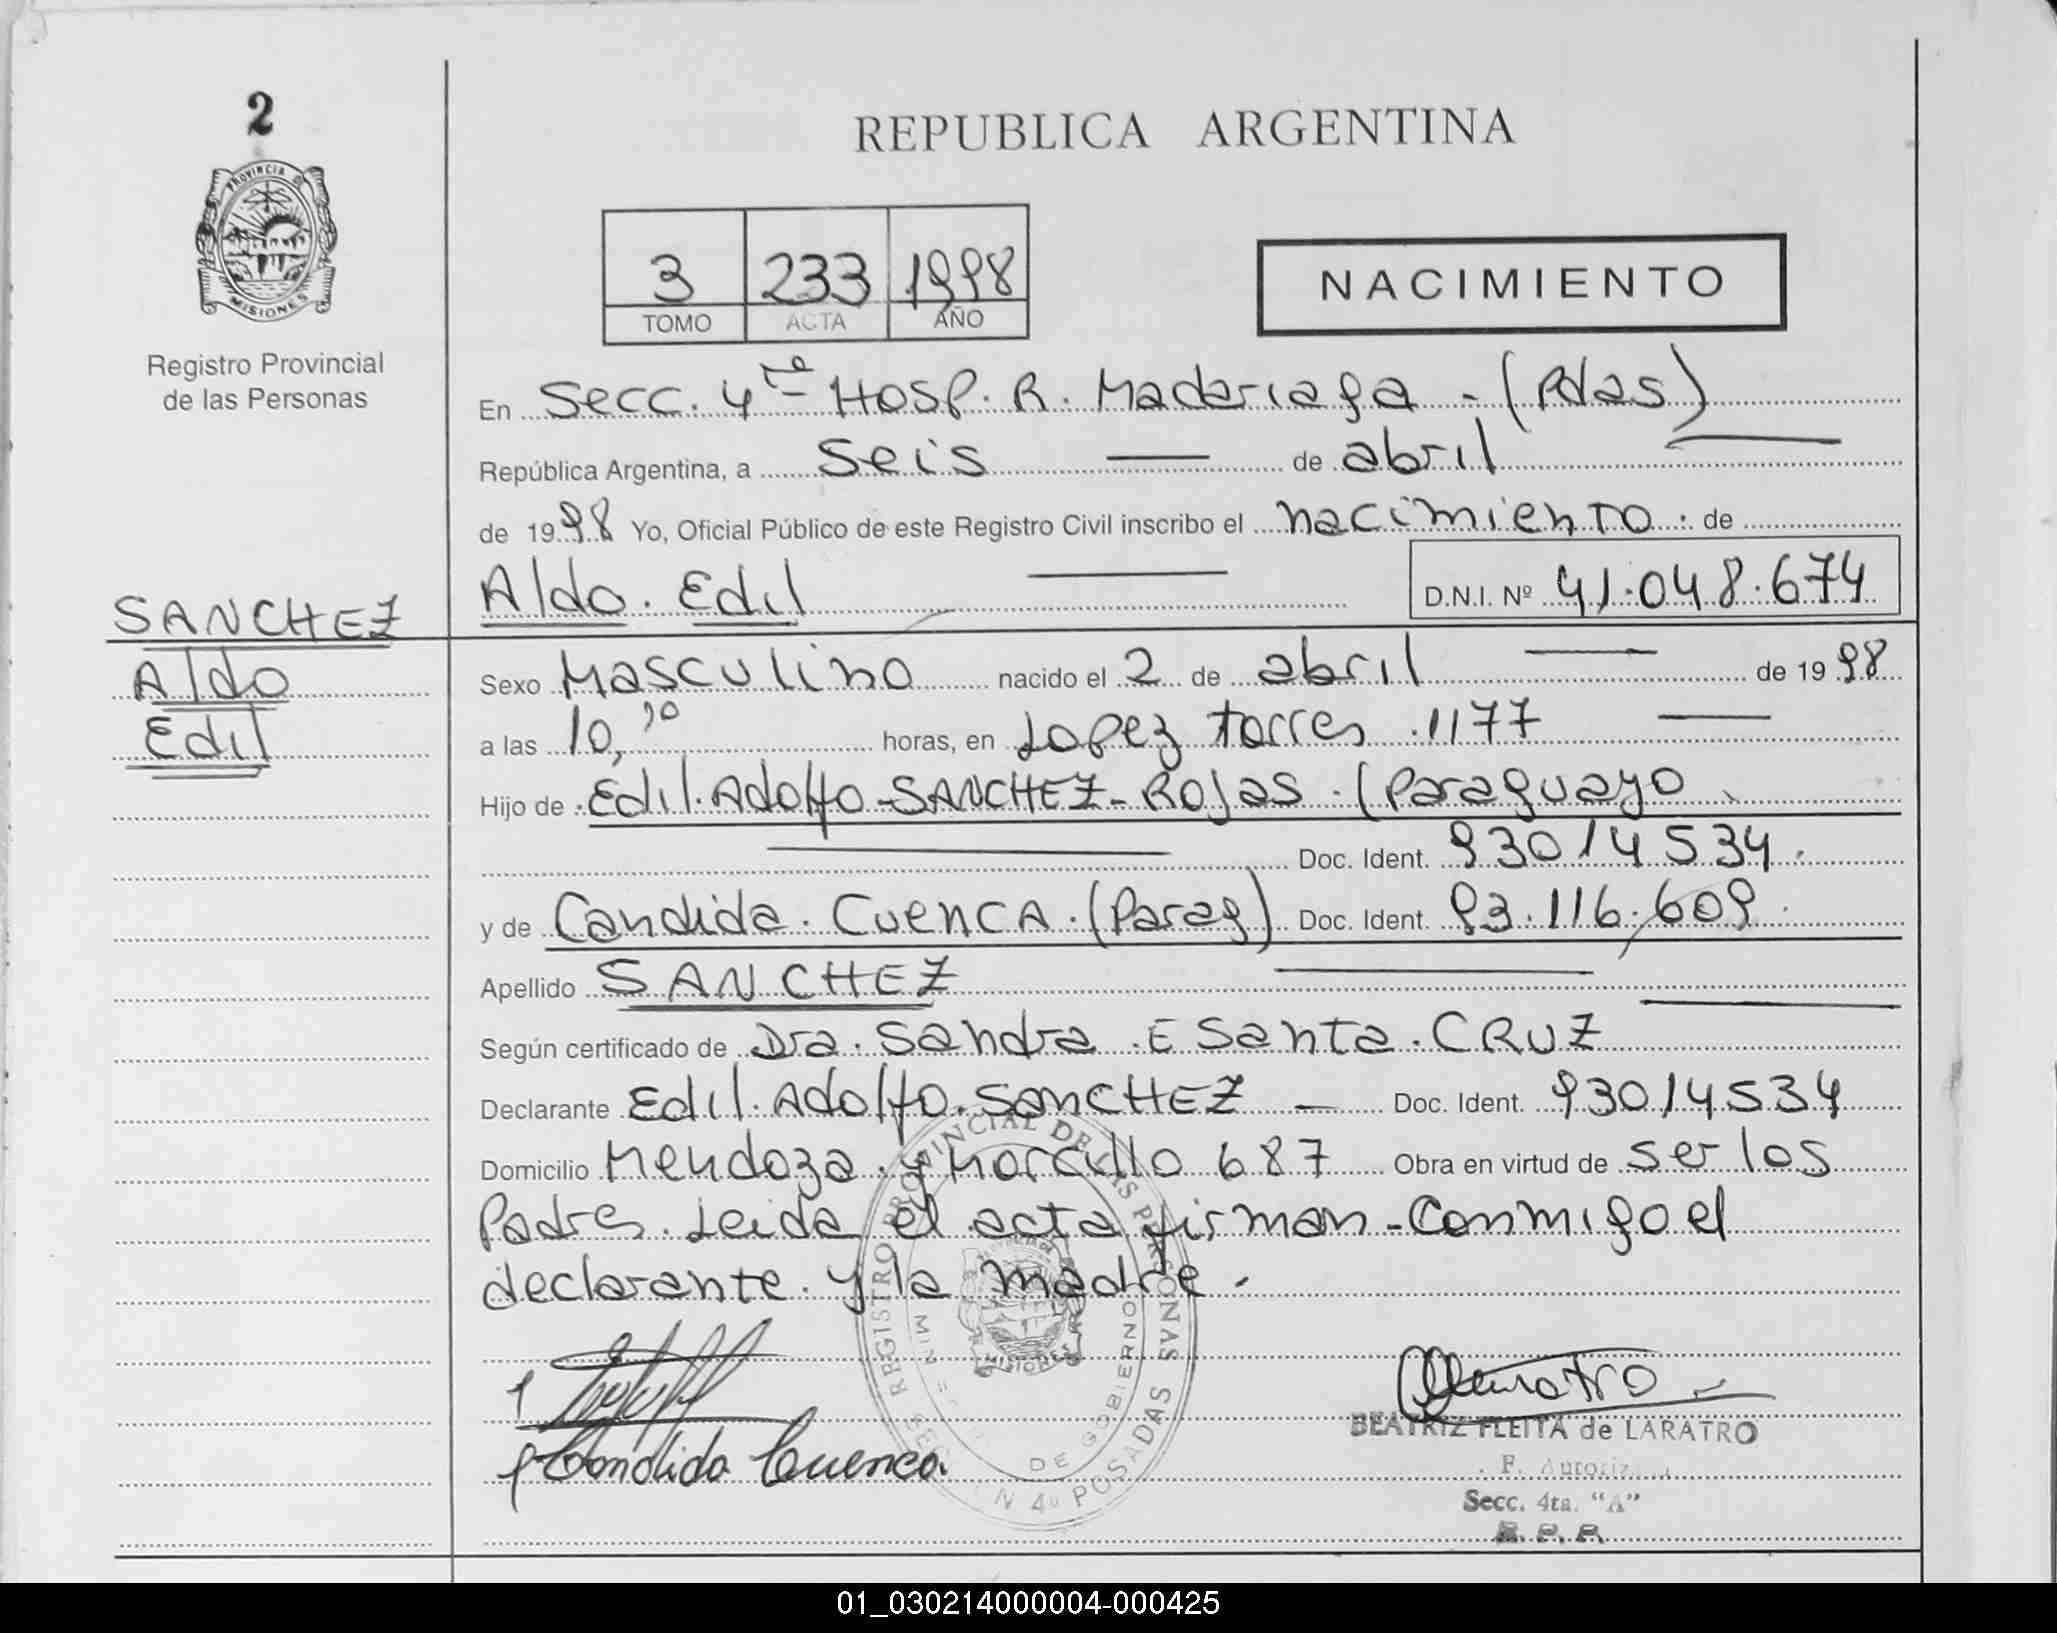 2
PROVINCIA DE
MISIONES
Registro Provincial
de las Personas
SANCHEZ
Aldo
Edil
REPUBLICA ARGENTINA
3 233 1998
TOMO ACTA AÑO
NACIMIENTO
En Secc. 4ta Hosp. R. Madariaga - (Pdas)
República Argentina, a seis de abril
de 1998 Yo, Oficial Público de este Registro Civil inscribo el nacimiento de
Aldo Edil D.N.I. Nº 41.048.674
Sexo Masculino nacido el 2 de abril de 1998
a las 10,30 horas, en Lopez torres 1177
Hijo de Edil Adolfo SANCHEZ - Rojas (Paraguayo
Doc. Ident. 93014534
y de Candida CuencA (Parag) Doc. Ident. 93.116.609
Apellido SANCHEZ
Según certificado de Dra. Sandra E Santa CRUZ
Declarante Edil Adolfo SANCHEZ Doc. Ident. 93014534
Domicilio Mendoza y Morcillo 687 Obra en virtud de ser los
Padres. Leida el acta firman conmigo el
declarante y la madre.
REGISTRO PROVINCIAL DE LAS PERSONAS
MISIONES
DE GOBIERNO
4º POSADAS
Candida Cuenca
BEATRIZ FLEITA de LARATRO
F. Autoriz
Secc. 4ta. "A"
R. P. P.
01_030214000004-000425